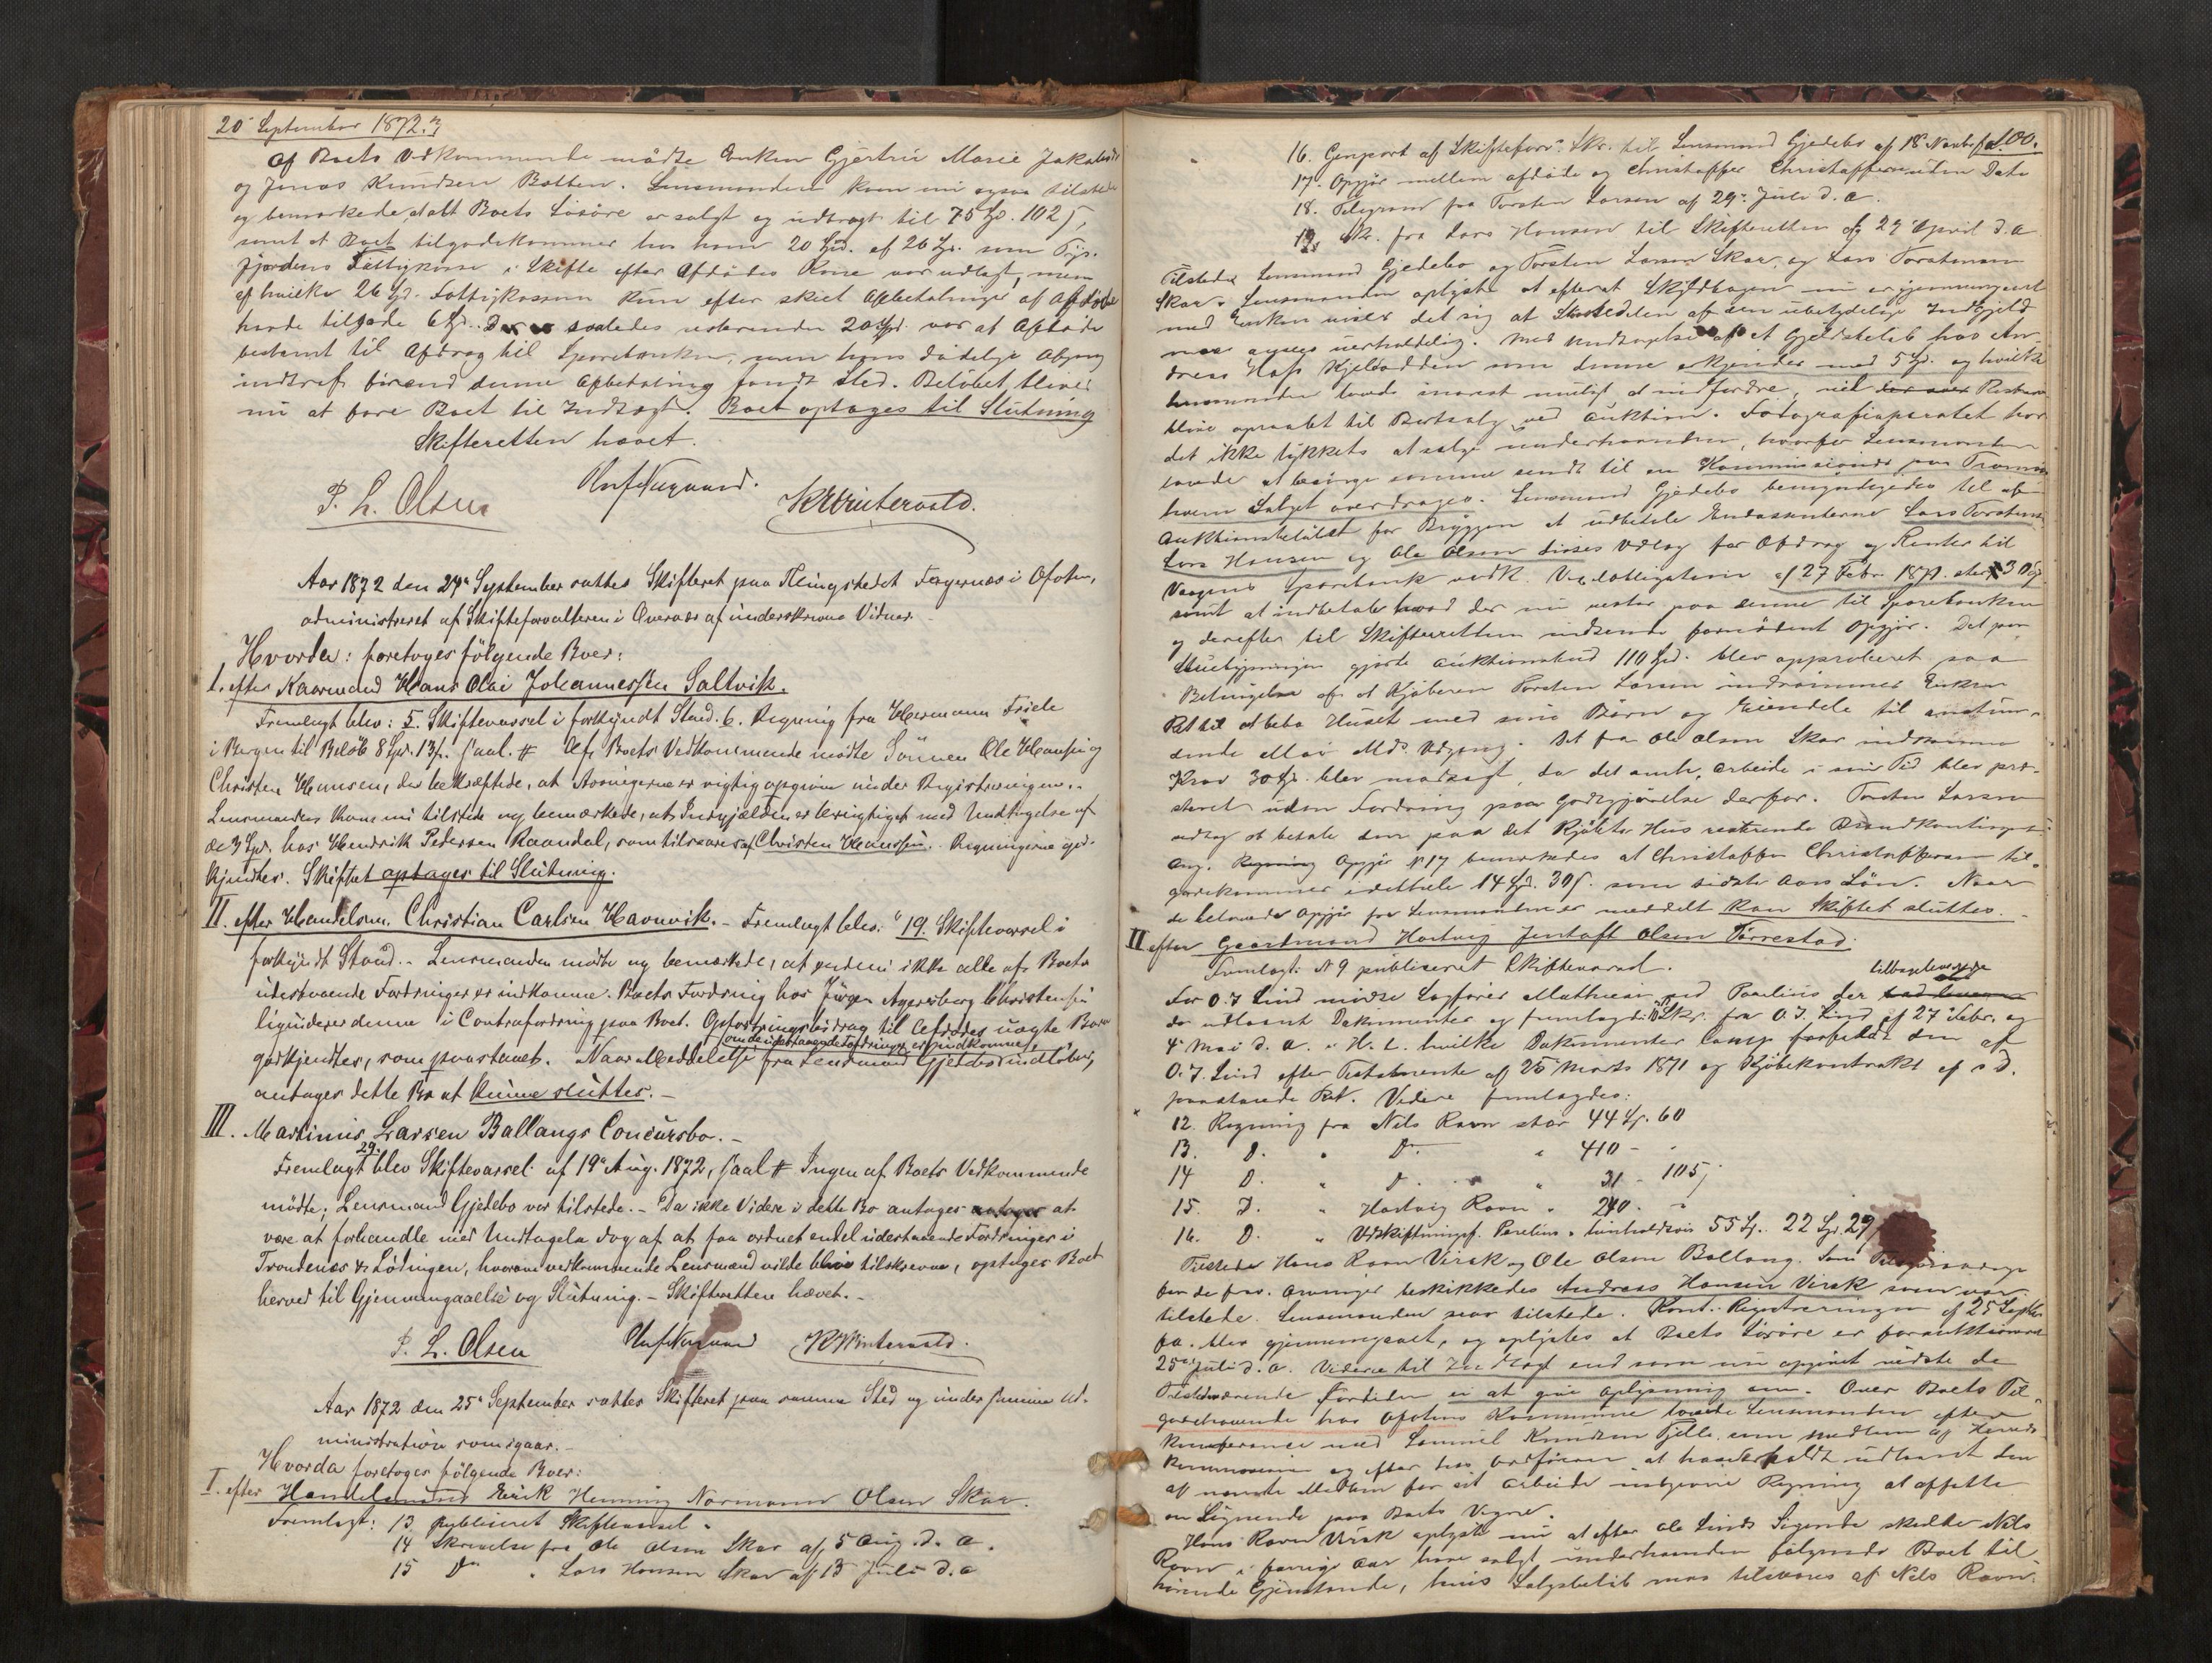 20 September 1872.
Af Boets Vedkommende mødte Enken Gjertrud Marie Jakobsd.
og Jonas Knudsen Botten. Lensmanden kom nu ogsaa tilstede
og bemærkede at alt Boets Løsøre er solgt og udbragt til 75 Spd. 102 ß,
samt at Boet tilgodekommer hos ham 20 Spd. af 26 Spd. som
fjordens Fattigkasse i Skifte efter Afdødes Kone var udlagt, men
af hvilke 26 Spd. Fattigkassen kun efter skeet Afbetalinger af Afdøde
havde tilgode 6 Spd. De saaledes resterende 20 Spd. var af Afdøde
bestemt til Afdrag til Sparebanken, men hans dødelige Afgang
indtraf førend denne Afbetaling fandt Sted. Beløbet bliver
nu at føre Boet til Indtægt. Boet optages til Slutning
Skifteretten hævet.
P. L. Olsen
K Wintervold.
Aar 1872 den 24de September sattes Skifteret paa Thingstedet Fagernæs i Ofoten,
administreret af Skifteforvalteren i Overvær af underskrevne Vidner.
Hvorda: foretoges følgende Boer:
I. efter Kaarmand Hans Olai Johannessen Saltvik.
Fremlagt blev: 5. Skiftevarsel i forkyndt Stand. 6. Regning fra Hermann Friele
i Bergen til Beløb 8 Spd. 13 ß. saal. # Af Boets Vedkommende mødte Sønnen Ole Hansen og
Christen Hansen, der bekræftede, at Arvingerne er rigtig opgivne under Registreringen.
Lensmanden kom nu tilstede og bemærkede, at Indgjælden er berigtiget med Undtagelse af
de 3 Spd. hos Hendrik Pedersen Raandal, som tilsvares af Christen Hanssen. Regningerne god-
kjendtes. Skiftet optages til Slutning.
II. efter Handelsm. Christian Carlsen Havnvik. - Fremlagt blev: 19. Skiftevarsel i
forkyndt Stand. - Lensmanden mødte og bemærkede, at endnu ikke alle af Boets
udestaaende Fordringer er indkomne. Boets Fordring hos Jørgen Agersborg Christensen
liquiderer denne i Contrafordring paa Boet. Opfostringsbidrag til Afdødes uægte Barn
godkjendtes, som paastaaet. Naar Meddelelse fra Lensmand Gjedebo indløber,
om de udestaaende Fordringer er indkomne,
antages dette Bo at kunne sluttes. -
III. Martinus Larsen Ballangs Concursbo. -
29.
Fremlagt blev Skiftevarsel af 19de Aug. 1872, saal # Ingen af Boets Vedkommende
mødte; Lensmand Gjedebo var tilstede. - Da ikke Videre i dette Bo antages at
være at forhandle med Undtagelse dog af at faa ordnet endel udestaaende Fordringer i
Trondenæs & Lødingen, hvorom vedkommende Lensmænd vilde blive tilskrevne, optages Boet
herved til Gjennemgaaelse og Slutning. - Skifteretten hævet. -
P. L. Olsen
K Wintervold.
Aar 1872 den 25de September sattes Skifteret paa samme Sted og under samme Ad-
ministration som igaar. -
Hvorda foretoges følgende Boer:
I. efter Handelsmand Erik Henning Normann Olsen Skar.
Fremlagt: 13 publiceret Skiftevarsel.
14 Skrivelse fra Ole Olsen Skar af 5 Aug. d. A.
15 Do " Lars Hansen Skar af 13 Juli d. A
100.
16. Genpart af Skifteforv. Skr. til Lensmand Gjedebo af 18 Novbr. f. A.
17. Opgjør mellem afdøde og Christoffer Christoffersen uden Dato
18. Telegram fra Torsten Larsen af 29 Juli d. A.
19. Skr. fra Lars Hansen til Skifteretten af 29 April d. A.
Tilstede Lensmand Gjedebo og Torsten Larsen Skar, og Lars Torstensen
Skar. Lensmanden oplyste at efterat Skyldbogen nu er gjennemgaaet
med Enken viser det sig at Størstedelen af den ubetydelige Indgjeld
maa ansees uerholdelig. Med Undtagelse af et Gjeldsbeløb hos An-
dreas Hass Kjeldodden som denne erkjender med 5 Spd. og hvilke
Lensmanden lovede snarest muligt at indfordre, vil Resten
blive opraabt til Bortsalg ved Auktion. Fotografiaparatet har
det ikke lykkets at sælge underhaanden, hvorfor Lensmanden
lovede at besørge samme sendt til en Kommissionær paa Tromsø
hvem Salget overdrages. Lensmand Gjedebo bemyndigedes til af
Auktionsbeløbet for Bryggen at udbetale Endossenterne Lars Torstensen
Lars Hansen og Ole Olsen disses Udlæg for Afdrag og Renter til
Vaagens Sparebank vedk. Vexelobligation af 27 Febr. 1871 stor 30 Spd
samt at indbetale hvad der nu rester paa denne til Sparebanken
og derefter til Skifteretten indsende fornødent Opgjør. Det paa
Stuebygningen gjorte Auktionsbud 110 Spd. blev approberet paa
Betingelse af at Kjøberen Torsten Larsen indrømmer Enken
Ret til at bebo Huset med sine Børn og Eiendele til anstun-
dende Mai Mds. Udgang. Det fra Ole Olsen Skar indkomne
Krav 30 Spd. blev modsagt, da det omh. Arbeide i sin Tid blev præ-
steret uden Fordring paa Godtgjørelse derfor. Torsten Larsen
vedtog at betale den paa det kjøbte Hus resterende Brandkontingent.
Ang. Opgjør N 17 bemerkedes at Christoffer Christoffersen til-
godekommer i dethele 14 Spd. 30 ß. som sidste Aars Løn. Naar
de betonede Opgjør fra Lensmanden er meddelt kan Skiftet sluttes. -
II efter Gaardmand Hartvig Jentoft Olsen Tørrestad.
Fremlagt: N 9 publiceret Skiftevarsel.
tilbageleverede
For O. J. Lind mødte Sagfører Mathiesen ved Paulius der
de udlaante Dokumenter og fremlagde 10 Skr. fra O. J. Lind af 27 Febr. og
4 Mai d. A. hvilke Dokumenter Comp. forbeholdt den af
O. J. Lind efter Testamente af 25 Marts 1871 og Kjøbekontrakt af s. D.
paastaaede Ret. Videre fremlagdes:
12. Regning fra Nils Ravn stor 44 Sp. 60
13. D. " Do " 410 - "
14 D. " D. " 31 - 105 ß
15. D. " Hartvig Ravn " 240. "
16. D. " Udskiftningsf. Parelius " 55 Sp. 22 Spd. 29
Tilstede Hans Ravn Virak og Ole Olsen Ballang. Som
for de frav. Arvinger beskikkedes Andreas Hansen Virak som var
tilstede. Lensmanden var tilstede. Registreringen af 25 Septbr.
f. A. blev gjennemgaaet, og oplystes at Boets Løsøre er forauktioneret
25 Juli d. A. Videre til Indtægt end som nu opgivet vidste de
Tilstedeværende fortiden ei at give Oplysning om. Over Boets Til-
godehavende hos Ofotens Kommune lovede Lensmanden efter
Konferance med Samuel Knudsen Fjelle som Medlem af Herreds-
kommissionen og efter hos Ordføreren at have erholdt udlaant den
af nævnte Medlem for sit Arbeide indgivne Regning at affatte
en Lignende paa Boets Vegne.
Hans Ravn Virak oplyste nu at efter Ole Linds Sigende skulde Nils
Ravn i forrige Aar have solgt underhaanden følgende Boet til-
hørende Gjenstande, hvis Salgsbeløb maa tilsvares af Nils Ravn.